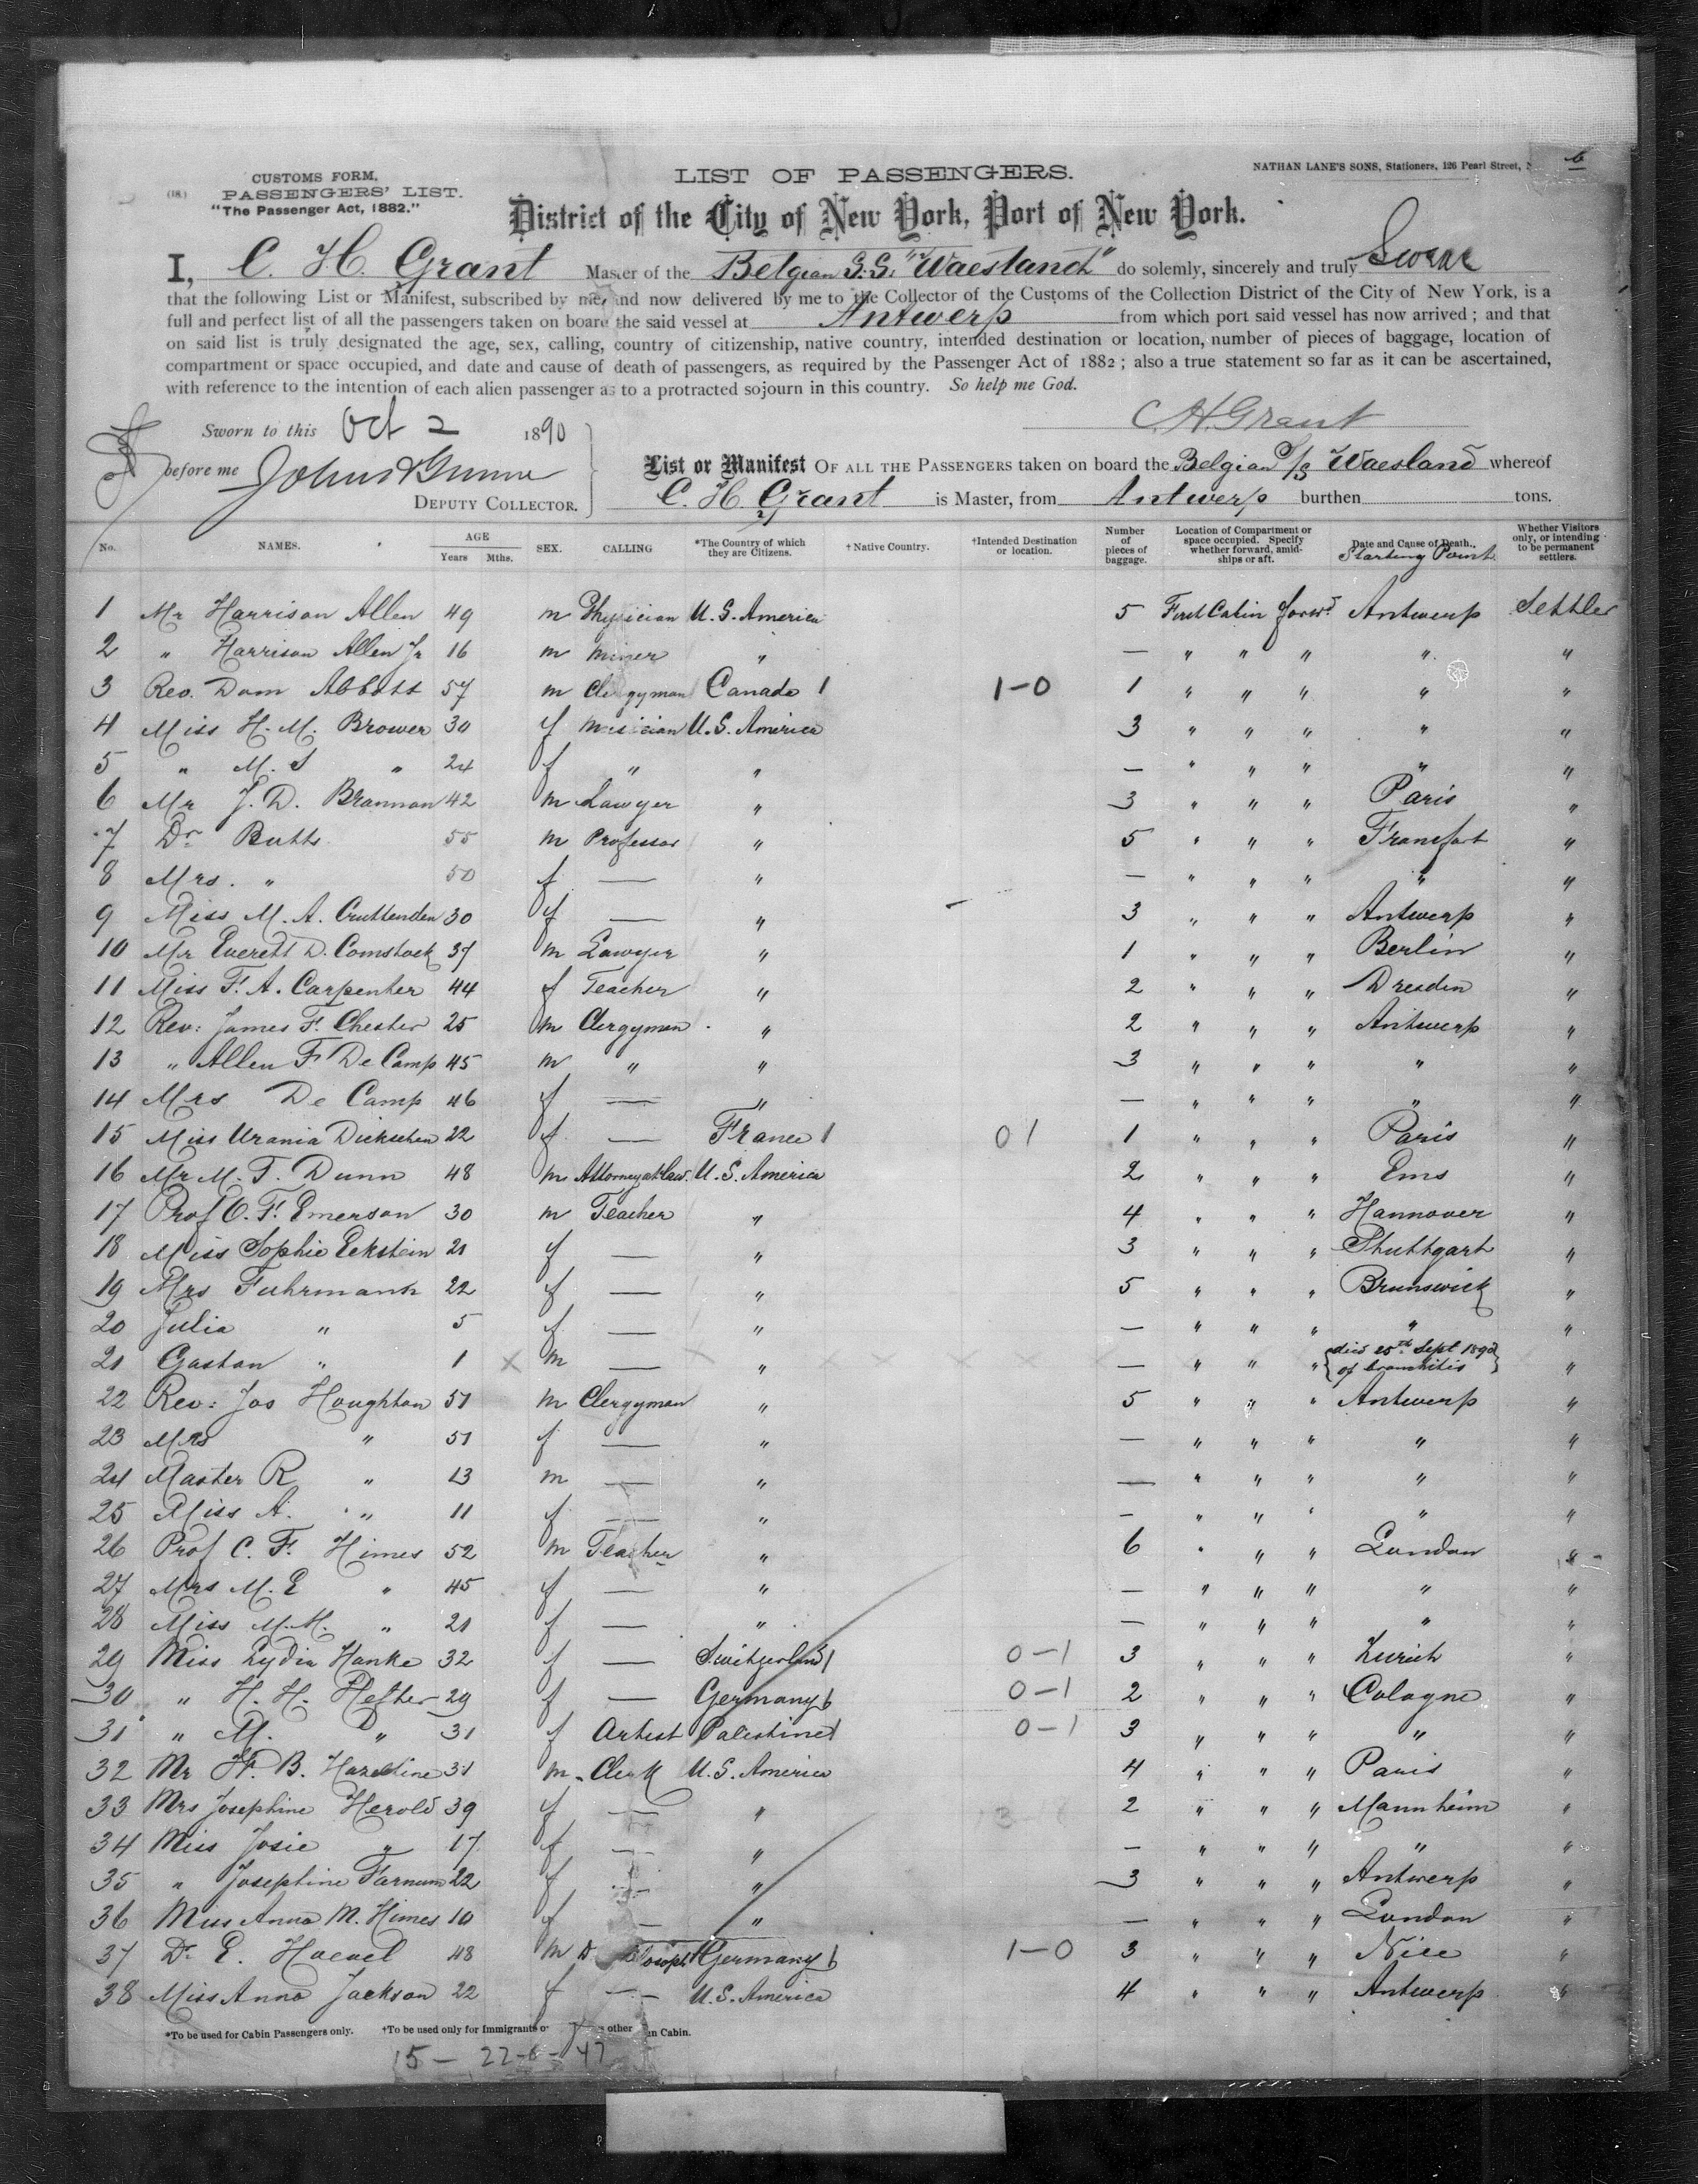 CUSTOMS FORM.
(18)
PASSENGERS' LIST.
"The Passenger Act, 1882."
LIST OF PASSENGERS.
NATHAN LANE'S SONS, Stationers, 126 Pearl Street,
District of the City of New York, Port of New York.
I, C. H. Grant Master of the Belgian S.S. "Waesland" do solemnly, sincerely and truly Swear
that the following List or Manifest, subscribed by me, and now delivered by me to the Collector of the Customs of the Collection District of the City of New York, is a
full and perfect list of all the passengers taken on board the said vessel at Antwerp from which port said vessel has now arrived ; and that
on said list is truly designated the age, sex, calling, country of citizenship, native country, intended destination or location, number of pieces of baggage, location of
compartment or space occupied, and date and cause of death of passengers, as required by the Passenger Act of 1882 ; also a true statement so far as it can be ascertained,
with reference to the intention of each alien passenger as to a protracted sojourn in this country. So help me God.
C.H. Grant
Sworn to this Oct 2 1890
before me
DEPUTY COLLECTOR.
List or Manifest OF ALL THE PASSENGERS taken on board the Belgian S/S Waesland whereof
C. H. Grant is Master, from Antwerp burthen tons.
No. NAMES. AGE Years Mths. SEX. CALLING *The Country of which they are Citizens. †Native Country. †Intended Destination or location. Number of pieces of baggage. Location of Compartment or space occupied. Specify whether forward, amidships or aft. Date and Cause of Death. Starting Point Whether Visitors only, or intending to be permanent settlers.
1 Mr Harrison Allen 49 m Physician U.S. America 5 First Cabin forwd Antwerp Settler
2 " Harrison Allen Jr 16 m Miner " — " " " " "
3 Rev. Dom Abbott 57 m Clergyman Canada 1 1-0 1 " " " " "
4 Miss H. M. Brower 30 f Musician U.S. America 3 " " " " "
5 " M. S " 24 f " " — " " " " "
6 Mr J. D. Brannan 42 m Lawyer " 3 " " " Paris "
7 Dr Butts 55 m Professor " 5 " " " Francfort "
8 Mrs. " 50 f — " — " " " " "
9 Miss M. A. Cruttenden 30 f — " 3 " " " Antwerp "
10 Mr Everett D. Comstock 37 m Lawyer " 1 " " " Berlin "
11 Miss F. A. Carpenter 44 f Teacher " 2 " " " Dresden "
12 Rev: James F. Chester 25 m Clergyman " 2 " " " Antwerp "
13 " Allen F. De Camp 45 m " " 3 " " " " "
14 Mrs De Camp 46 f — " — " " " " "
15 Miss Urania 22 f — France 1 0 1 1 " " " Paris "
16 Mr M. T. Dunn 48 m Attorney at law. U.S. America 2 " " " Ems "
17 Prof O. F. Emerson 30 m Teacher " 4 " " " Hannover "
18 Miss Sophie Eckstein 21 f — " 3 " " " Stuttgart "
19 Mrs Fuhrmann 22 f — " 5 " " " Brunswick "
20 Julia " 5 f — " — " " " " "
21 Gaston " 1 x m — " — " " " died 25th Sept 1890 of bronchitis "
22 Rev: Jos Houghton 51 m Clergyman " 5 " " " Antwerp "
23 Mrs " 51 f — " — " " " " "
24 Master R " 13 m — " — " " " " "
25 Miss A. " 11 f — " — " " " " "
26 Prof C. F. Himes 52 m Teacher " 6 " " " London "
27 Mrs M. E " 45 f — " — " " " " "
28 Miss M. M. " 21 f — " — " " " " "
29 Miss Lydia Hanke 32 f — Switzerland 1 0-1 3 " " " Zurich "
30 " H. H. 29 f — Germany 0-1 2 " " " Cologne "
31 " M. " 31 f Artist Palestine 1 0-1 3 " " " " "
32 Mr H. B. 31 m Clerk U.S. America 4 " " " Paris "
33 Mrs Josephine Herold 39 f — " 2 " " " Mannheim "
34 Miss Josie " 17 f — " — " " " " "
35 " Josephine Farnum 22 f — " 3 " " " Antwerp "
36 Miss Anna M. Himes 10 f — " — " " " London "
37 Dr E. 48 m Germany 1-0 3 " " " Nice "
38 Miss Anna Jackson 22 f — U.S. America 4 " " " Antwerp "
*To be used for Cabin Passengers only. †To be used only for Immigrants other Cabin.
15 — 22-6-47